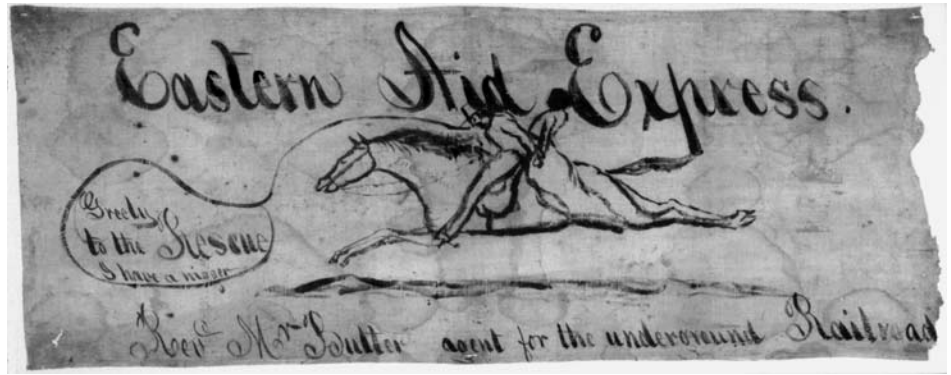 Eastern Aid Express.
Greely
to the Rescue
I have a nigger
Revd. Mr Butler agent for the underground Railroad